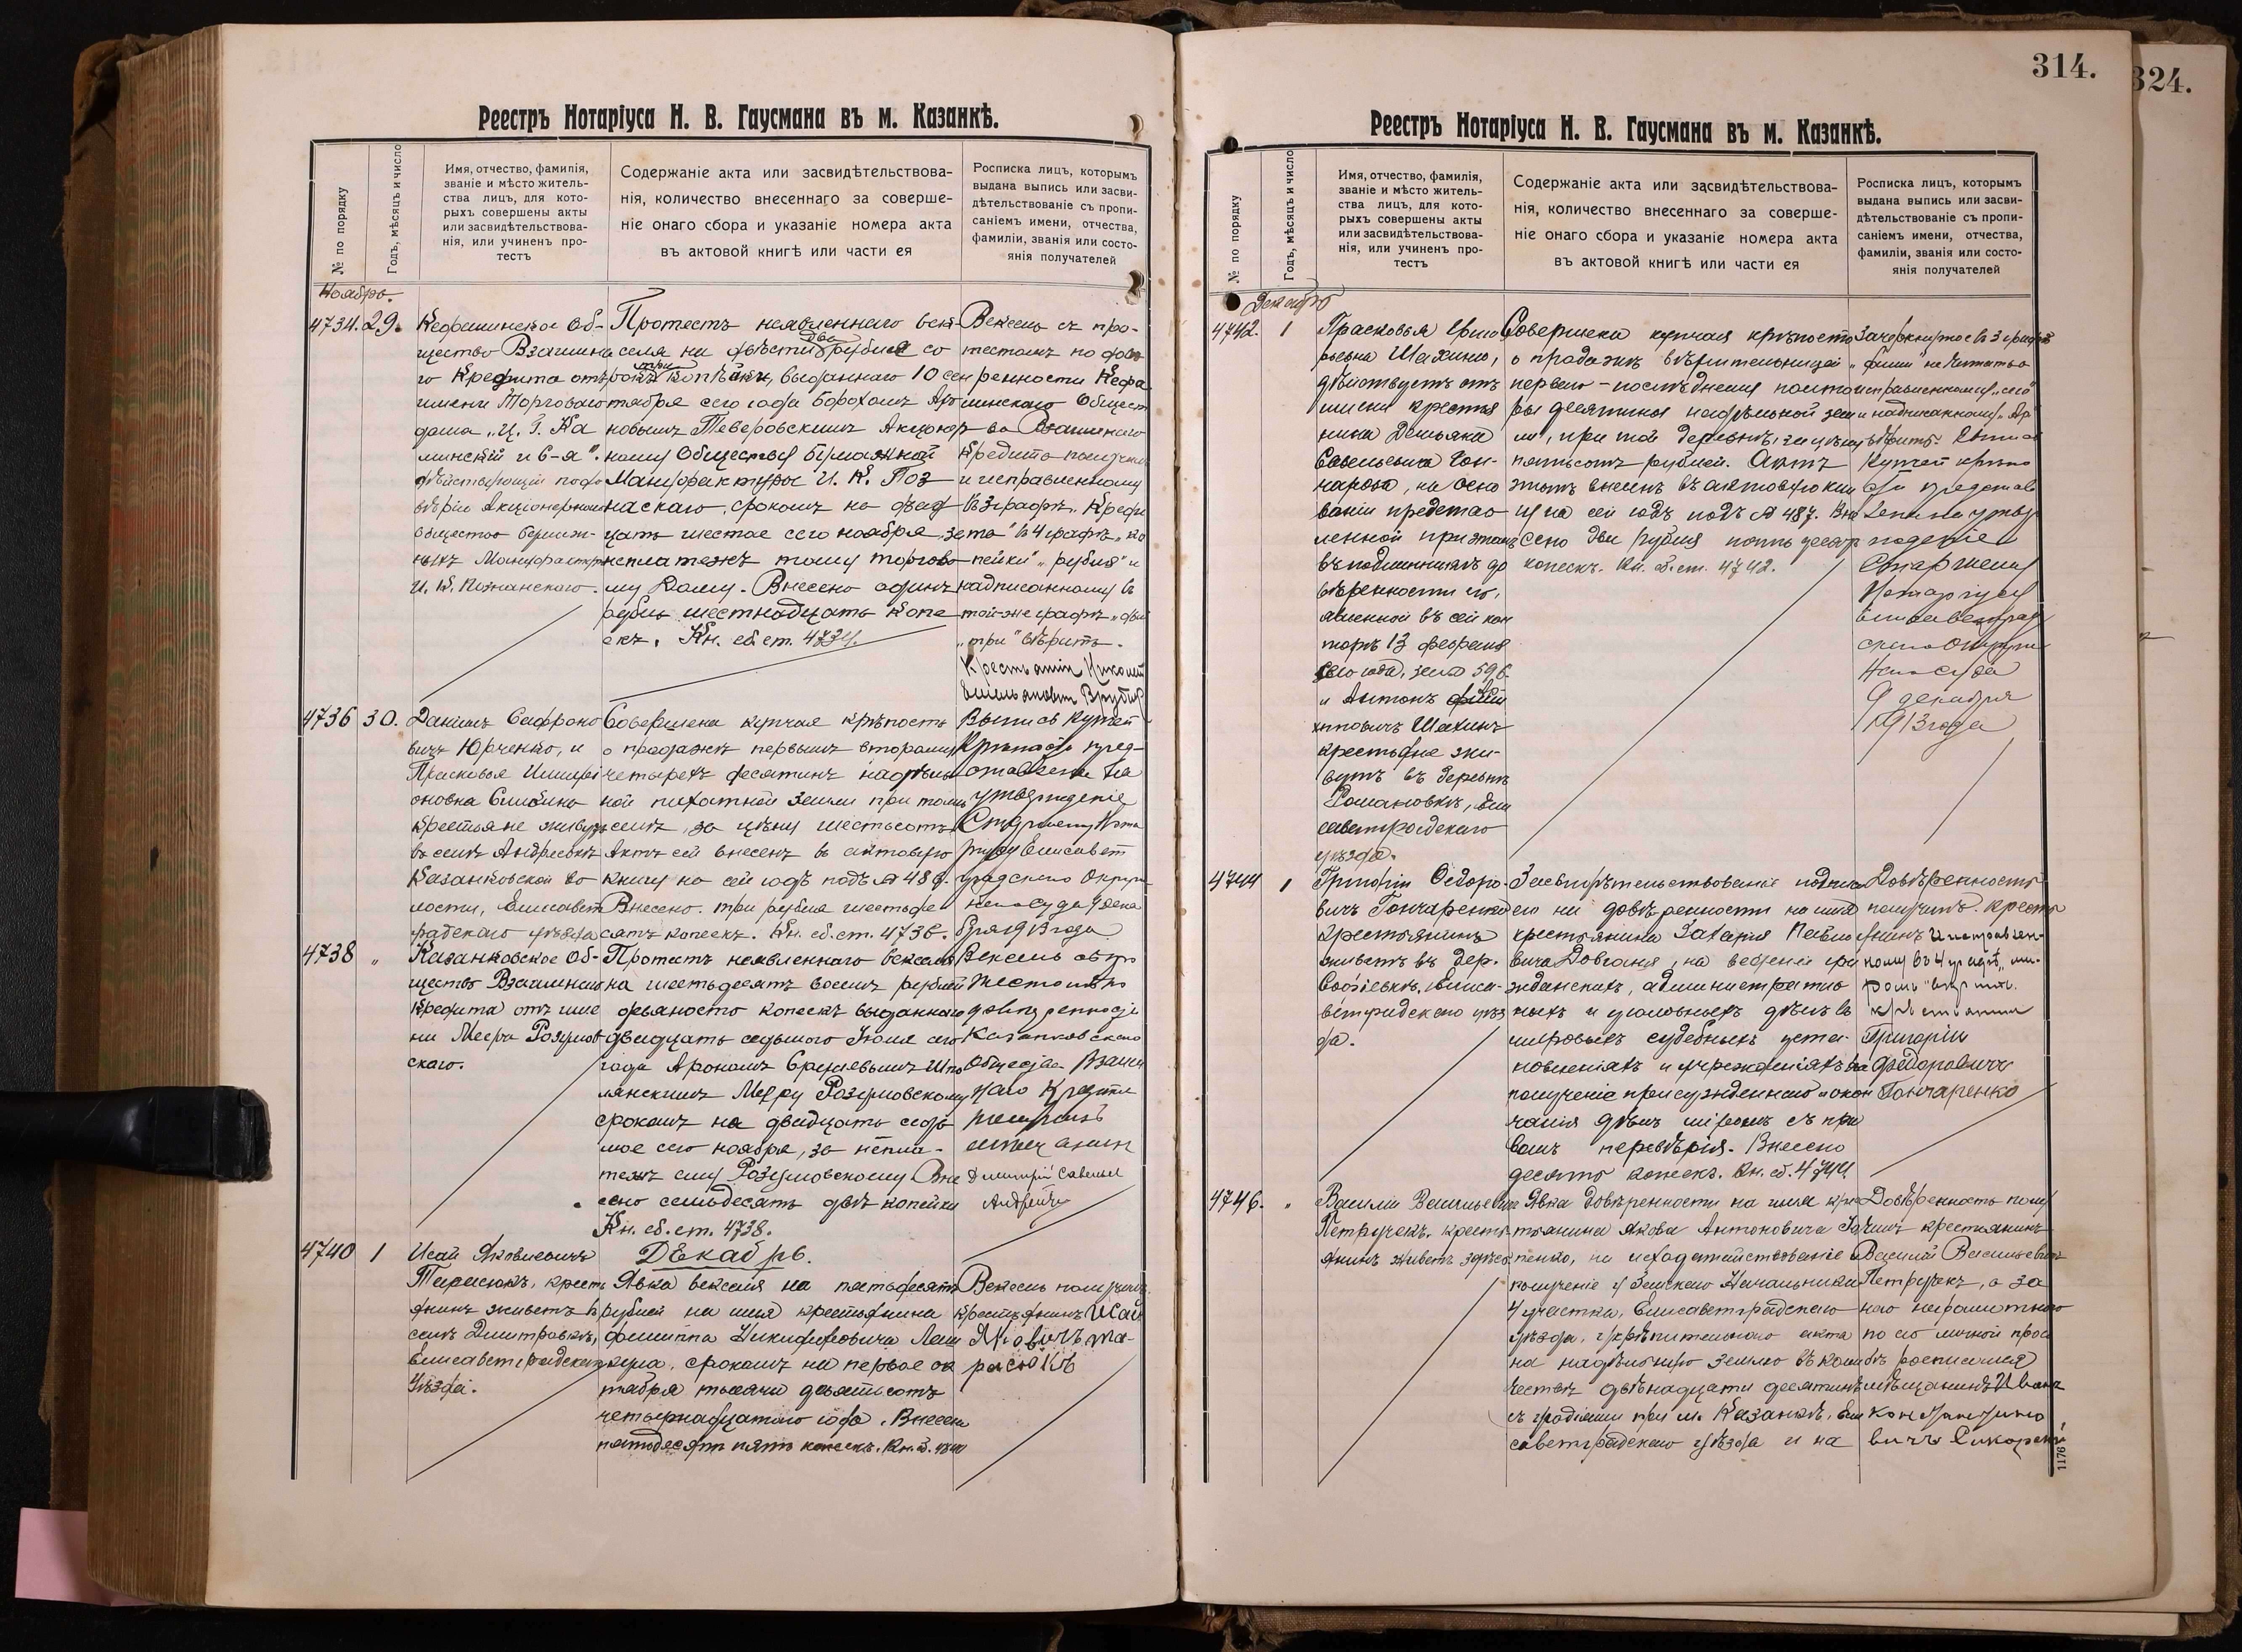 314.
324.
Реестръ Нотаріуса Н. В. Гаусмана въ м. Казанкѣ.
№ по порядку
Годъ, мѣсяцъ и число
Имя, отчество, фамилія,
званіе и мѣсто житель-
ства лицъ, для кото-
рыхъ совершены акты
или засвидѣтельствова-
нія, или учиненъ про-
тестъ
Содержаніе акта или засвидѣтельствова-
нія, количество внесеннаго за соверше-
ніе онаго сбора и указаніе номера акта
въ актовой книгѣ или части ея
Росписка лицъ, которымъ
выдана выпись или засви-
дѣтельствованіе съ пропи-
саніемъ имени, отчества,
фамиліи, званія или состо-
янія получателей
Ноябрь.
4734. 29.
Общество Взаимна
го Кредита отъ
имени Торговаго
дома „
минскій и С-я".
дѣйствующій по до
вѣрію Акціонернаго
Общества
ныхъ Мануфактуръ
И. К. Познанскаго.
Протестъ неявленнаго век-
селя на двѣсти два рубля со
рокъ три копѣйки, выданнаго 10 сен
тября сего года
новымъ Теверовскимъ Акціонер
ному Обществу бумажной
Мануфактуры И. К. Поз
нанскаго, срокомъ на двад
цать шестое сего ноября, за
неплатежъ тому торгово
му Дому. Внесено одинъ
рубль шестнадцать копе
екъ. Кн. сб. ст. 4734.
Вексель съ про-
тестомъ по довѣ
ренности
минскаго Общест
ва Взаимнаго
Кредита получилъ
и исправленному
въ 3 графѣ „Креди
та" въ 4 графѣ „ко
пейки" „рубля" и
надписанному въ
той-же графѣ „два
„три" вѣрить.
4736 30.
Данилъ Сафроно
вичъ Юрченко, и
Прасковья
оновна
крестьяне живутъ
въ селѣ Андреевкѣ
Казанковской во
лости, Елисавет
градскаго уѣзда
Совершена купчая крѣпость
о продажѣ первымъ второму
четырехъ десятинъ надѣль
ной пахатной земли при томъ
селѣ, за цѣну шестьсотъ
Актъ сей внесенъ въ актовую
книгу на сей годъ подъ № 486.
Внесено три рубля шестьде
сятъ копеекъ. Кн. сб. ст. 4736.
Выпись купчей
крѣпости пред-
ставлена на
утвержденіе
Старшему Нота
ріусу Елисавет
градскаго Окруж
наго суда 9 дека
бря 1913 года
4738 „
Казанковское Об-
щество Взаимнаго
Кредита отъ име
ни Меера Розумов
скаго.
Протестъ неявленнаго векселя
на шестьдесятъ восемь рублей
девяносто копеекъ выданнаго
двадцать седьмого Іюля сего
года Арономъ
лянскимъ Мееру Розумовскому
срокомъ на двадцать седь
мое сего ноября, за непла-
тежъ ему Розумовскому Вне
сено семьдесятъ двѣ копейки
Кн. сб. ст. 4738.
Вексель съ про
тестомъ по
довѣренности
Казанковскаго
Общества Взаим
наго Кредита
получилъ
мещанин
Дмитрій Савельев
Андрейчу
4740 1
Исай Яковлевичъ
Тарасюкъ, крест
янинъ живетъ въ
селѣ Дмитровкѣ,
Елисаветградскаго
Уѣзда.
Декабрь.
Явка векселя на пятьдесятъ
рублей на имя крестьянина
Филиппа Никифоровича
срокомъ на первое ок
тября тысяча девятьсотъ
четырнадцатого года. Внесено
пятьдесятъ пять копеекъ. Кн. сб. 4740
Вексель получилъ
крестьянинъ Исай
Яковичъ та-
расюкъ
Реестръ Нотаріуса Н. В. Гаусмана въ м. Казанкѣ.
№ по порядку
Годъ, мѣсяцъ и число
Имя, отчество, фамилія,
званіе и мѣсто житель-
ства лицъ, для кото-
рыхъ совершены акты
или засвидѣтельствова-
нія, или учиненъ про-
тестъ
Содержаніе акта или засвидѣтельствова-
нія, количество внесеннаго за соверше-
ніе онаго сбора и указаніе номера акта
въ актовой книгѣ или части ея
Росписка лицъ, которымъ
выдана выпись или засви-
дѣтельствованіе съ пропи-
саніемъ имени, отчества,
фамиліи, званія или состо-
янія получателей
Декабрь
4742. 1
Прасковья Григо
рьевна Шахина,
дѣйствуетъ отъ
имени крестья
нина Демьяна
Савельевича Гон-
чарова, на осно
ваніи представ
ленной при томъ
въ подлинникѣ до
вѣренности его,
явленной въ сей кон
торѣ 13 февраля
сего года, за № 596
и Антонъ
Шахинъ
крестьяне жи-
вутъ въ деревнѣ
Романовкѣ, Ели
саветградскаго
уѣзда.
Совершена купчая крѣпость
о продажѣ вѣрительницей
первою - послѣднему полто
ры десятины надѣльной зем
ли, при той деревнѣ, за цѣну
пятьсотъ рублей. Актъ
этотъ внесенъ въ актовую кни
гу на сей годъ подъ № 487. Вне
сено два рубля пять десятъ
копеекъ. Кн. сб. ст. 4742.
Зачеркнутое въ 3 графѣ
не читать а
исправленному „его"
и надписанному
вѣрить. Выпись
купчей крѣпо
сти представ
лена на утвер
жденіе
Старшему
Нотаріусу
Елисаветград
скаго Окруж
наго суда
9 декабря
1913 года
4744 1
Григорій Ѳедоро-
вичъ Гончаренко
крестьянинъ
живетъ въ дер.
Елиса-
ветградскаго уѣз
да.
Засвидѣтельствованіе подписи
его на довѣренности на имя
крестьянина Захарія Павло
вича Довганя, на веденіе гра
жданскихъ, административ
ныхъ и уголовныхъ дѣлъ въ
мировыхъ судебныхъ уста
новленіяхъ и учрежденіяхъ на
полученіе присужденнаго и окон
чанія дѣлъ миромъ съ пра
вомъ перевѣрія. Внесено
десять копеекъ. Кн. сб. 4744.
Довѣренность
получилъ. кресть
янинъ и исправлен-
ному въ 4 графѣ „ми-
ромъ" вѣрить.
крестянин
Григорій
Федоровичъ
Гончаренко
4746. „
Василій Васильевичъ
Петручекъ, кресть
янинъ живетъ здѣсь
Явка довѣренности на имя кре
стьянина Якова Антоновича
на исходатайствованіе и
полученіе у Земскаго Начальника
4 участка, Елисаветградскаго
уѣзда, укрѣпительнаго акта
на надѣльную землю въ коли
чествѣ двѣнадцати десятинъ
при м. Казанкѣ, Ели
саветградскаго уѣзда и на
Довѣренность полу
чилъ крестьянинъ
Василій Васильевичъ
Петручекъ, а за
него неграмотнаго
по его личной прось
бѣ росписался
мѣщанинъ Иванъ
Константино
вичъ
1176